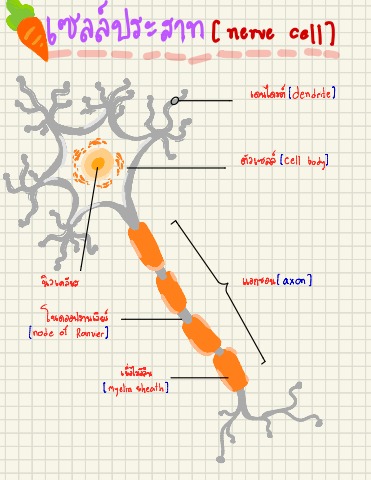 เซลล์ประสาท [nerve cell]
เดนไดรต์ [dendrite]
ตัวเซลล์ [Cell body]
นิวเคลียส
แอกซอน [axon]
โนดออฟแรนเวียร์
[node of Ranvier]
เยื่อไมอีลิน
[Myelin sheath]